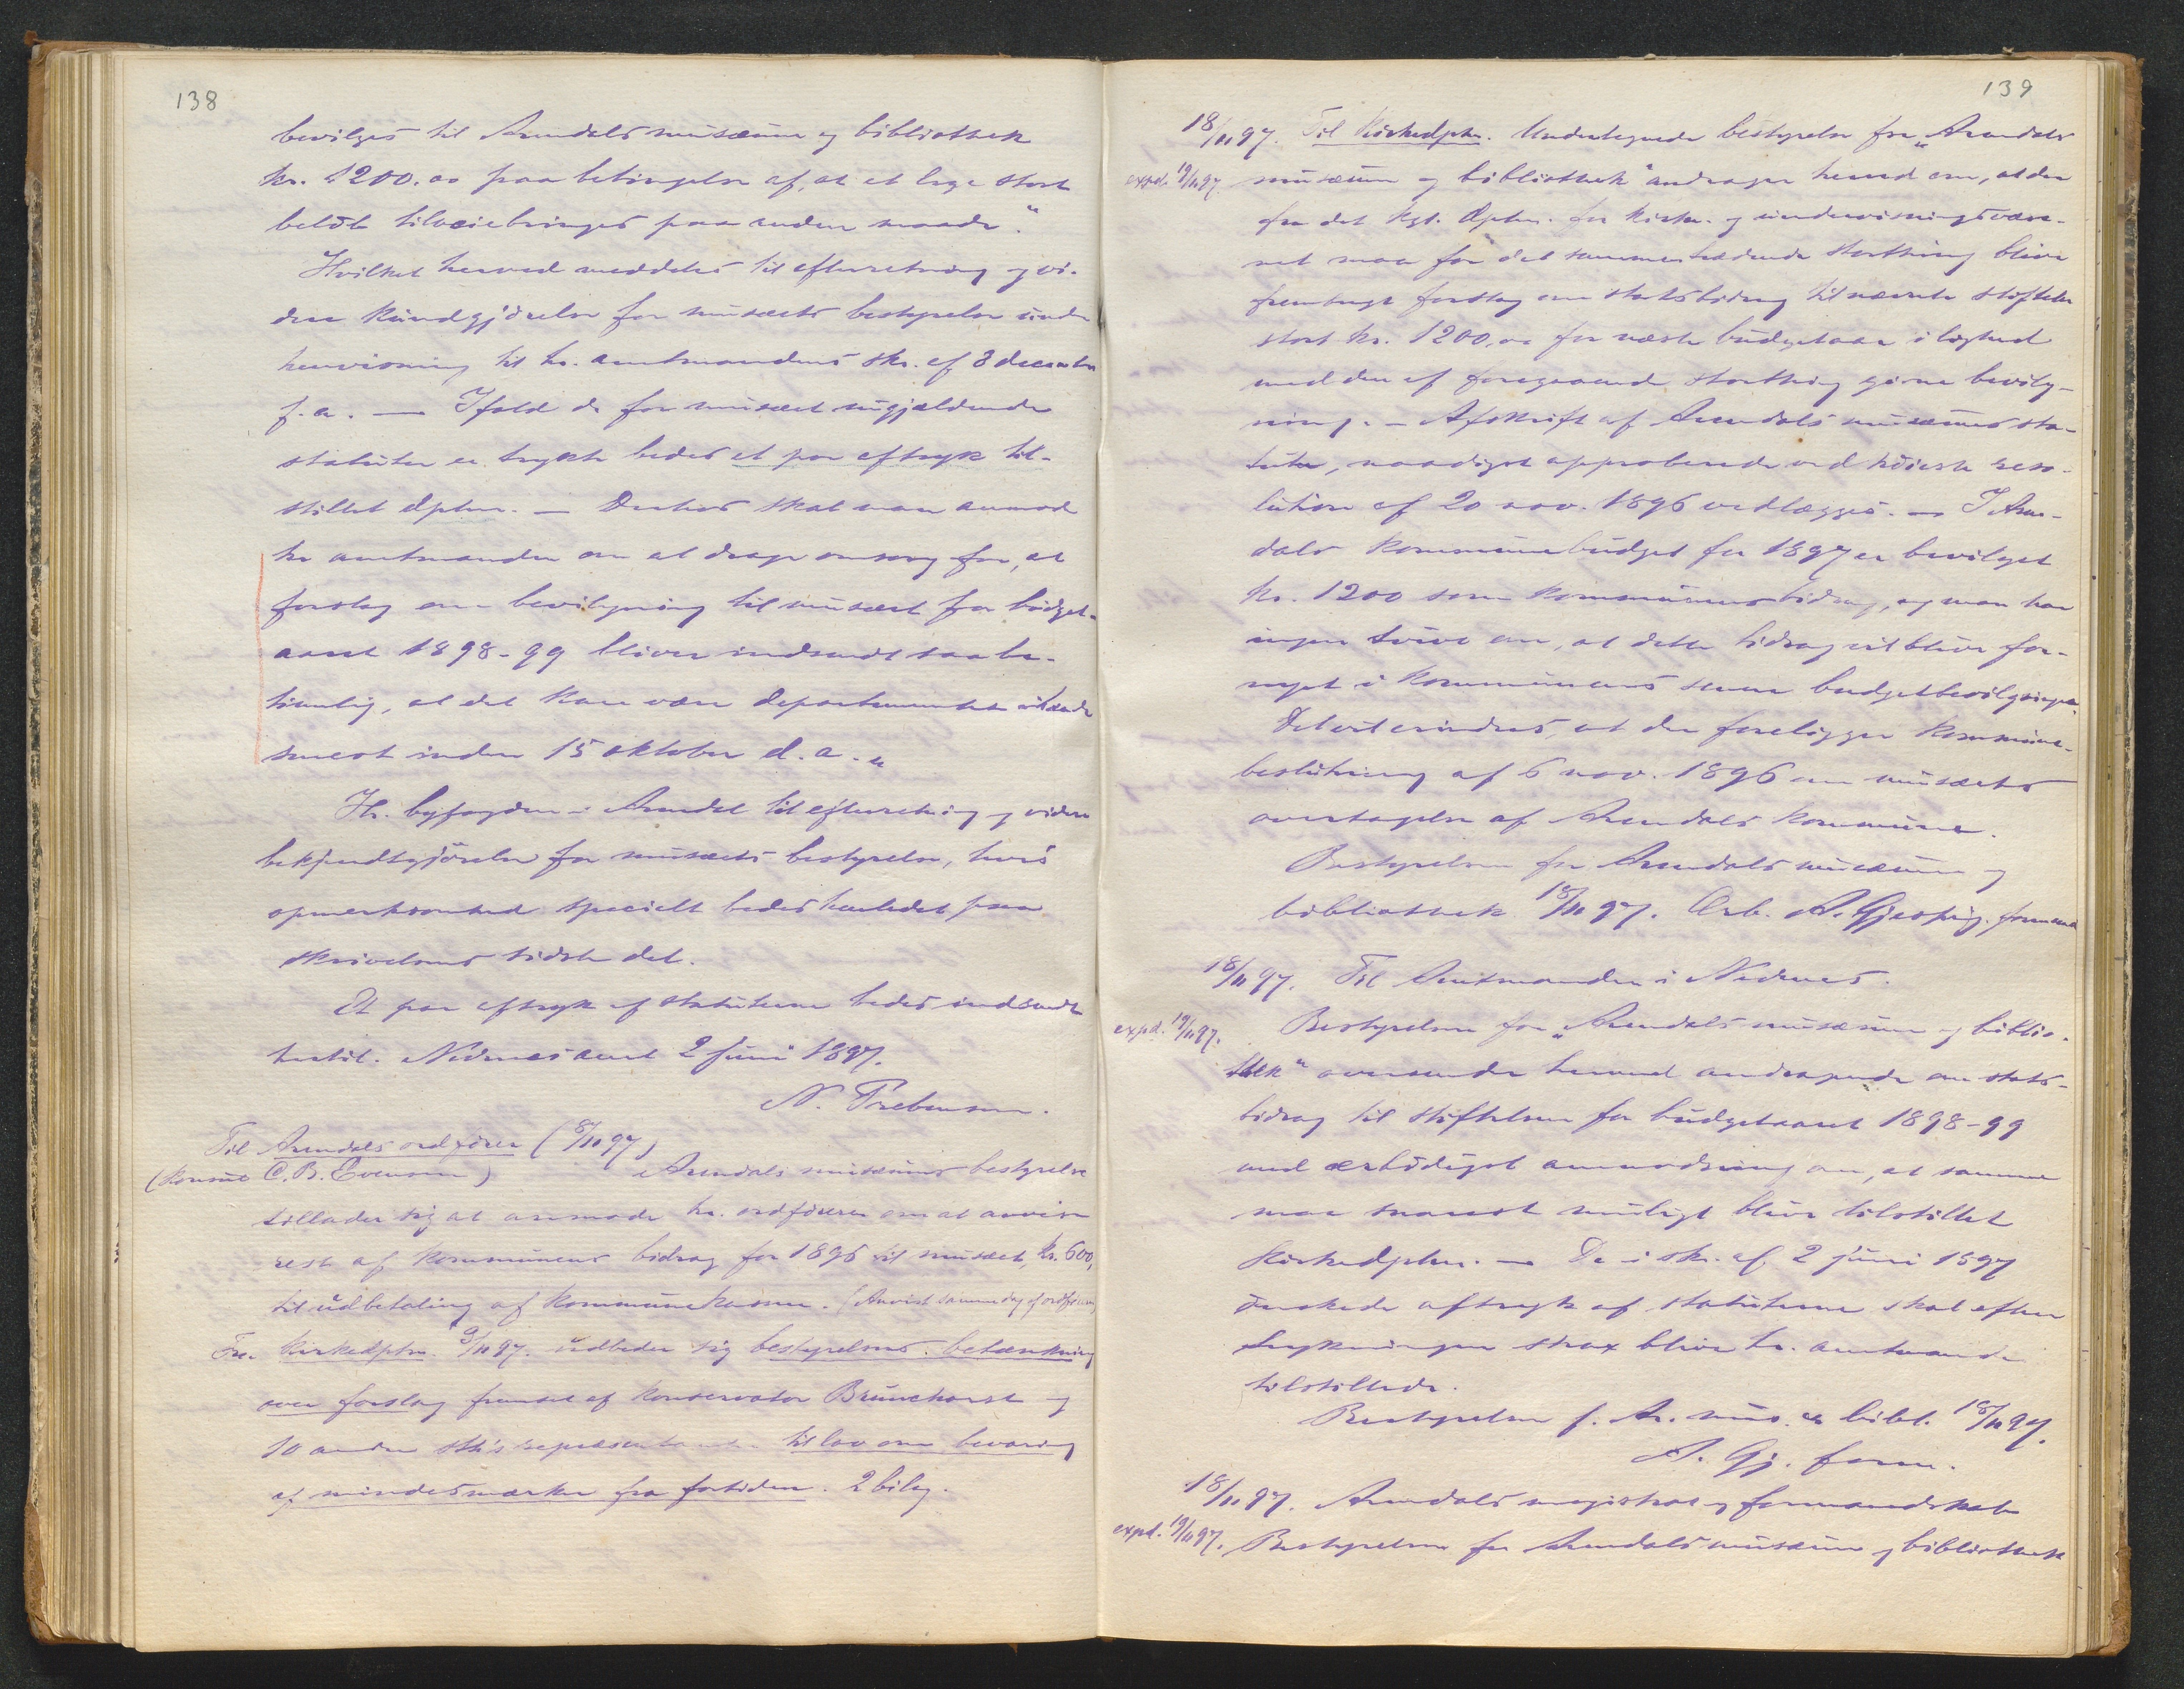 138
bevilges til Arendals musæum og bibliothek
kr. 1200.00 paa betingelse af, at et lige stort
beløb tilveiebringes paa anden maade."
Hvilket herved meddeles til efterretning og vi-
dere kundgjørelse for musæets bestyrelse under
henvisning til hr. amtmandens skr. af 8 december
f. a. — Ifald de for musæet nugjældende
statuter er trykte bedes et par aftryk til-
stillet dptm. — Derhos skal man anmode
hr amtmanden om at drage omsorg for, at
forslag om bevilgning til musæet for budget-
aaret 1898-99 bliver indsendt saa be-
timelig, at det kan være departementet ihænde
senest inden 15 oktober d. a. "
Hr. byfogden i Arendal til efterretning og videre
bekjendtgjørelse for musæets bestyrelse, hvis
opmerksomhed specielt bedes henledet paa
skrivelsens sidste del.
Et par aftryk af statuterne bedes indsendt
hertil. Nedenes amt 2 juni 1897.
N. Prebensen.
Til Arendals ordfører (8/11 97)
(Konsul C. B. Evensen) Arendals musæums bestyrelse
tillader sig at anmode hr. ordføreren om at anvise
rest af kommunens bidrag for 1896 til musæet, kr. 600,
til udbetaling af kommunekassen. (Anvist samme dag af ordføreren)
Fra Kirkedptm. 9/11 97. udbeder sig bestyrelsens betænkning
over forslag fremsat af konservator Brunchorst og
10 andre sth's repræsentanter til lov om bevaring
af mindesmærker fra fortiden. 2 bilag.
139
18/11 97. Til Kirkedptm. Undertegnede bestyrelse for „Arendals
expd. 19/11 97. musæum og bibliothek" andrager herved om, at der
fra det kgl. dptm. for kirke- og undervisningsvæse-
net maa for det sammentrædende storthing blive
fremsagt forslag om statsbidrag til nævnte stiftelse
stort kr. 1200,00 for næste budgetaar i lighed
med den af foregaaende storthing givne bevilg-
ning. — Afskrift af Arendals musæums sta-
tuter, naadigst approberede ved høieste reso-
lution af 20 nov. 1896 vedlægges. — I Aren-
dals kommunebudget for 1897 er bevilget
kr. 1200 som kommunens bidrag, og man har
ingen tvivl om, at dette bidrag vil blive for-
nyet i kommunens senere budgetbevilgninger.
Det vil erindres, at der foreligger kommune-
beslutning af 6 nov. 1896 om musæets
overtagelse af Arendals kommune.
Bestyrelsen for Arendals musæum og
bibliothek 18/11 97. Ærb. A. Gjestvig. formand
18/11 97. Til Amtmanden i Nedenes.
expd. 19/11 97. Bestyrelsen for „Arendals musæum og biblio-
thek" oversender herved andragende om stats-
bidrag til stiftelsen for budgetaaret 1898-99
med ærbødigst anmodning om, at samme
maa snarest muligt blive tilstillet
Kirkedptm. — De i skr. af 2 juni 1897
ønskede aftryk af statuterne skal efter
trykningen strax blive hr. amtmanden
tilstillede.
Bestyrelsen f. Ar. mus. & bibl. 18/11 97.
A. Gj. form.
18/11 97. Arendals magistrat og formandskab
expd. 19/11 97. Bestyrelsen for Arendals musæum og bibliothek